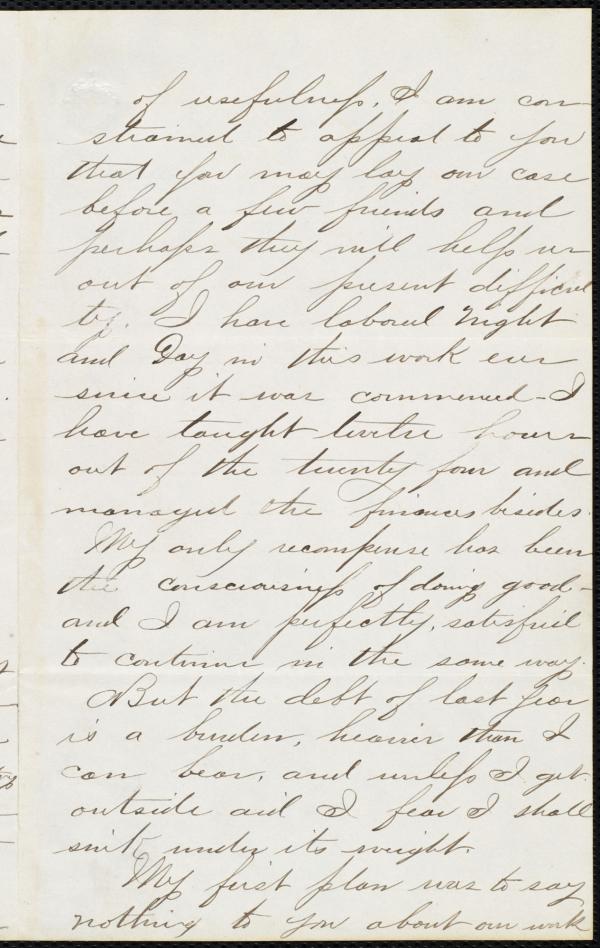 of usefulness, I am con-
strained to appeal to you
that you may lay our case
before a few friends and
perhaps they will help us
out of our present difficul
ty. I have labored Night
and Day in this work ever
since it was commenced - I
have taught twelve hours
out of the twenty four and
managed the finances besides.
My only recompense has been
the consciousness of doing good -
and I am perfectly, satisfied
to continue in the same way.
But the debt of last year
is a burden, heavier than I
can bear, and unless I get
outside aid I fear I shall
sink under its weight.
My first plan was to say
nothing to you about our work